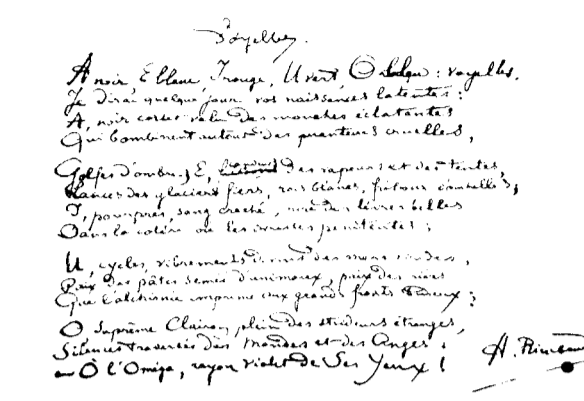 Voyelles
A noir, E blanc, I rouge, U vert, O bleu : voyelles,
Je dirai quelque jour vos naissances latentes :
A, noir corset velu des mouches éclatantes
Qui bombinent autour des puanteurs cruelles,
Golfes d'ombre ; E, candeurs des vapeurs et des tentes,
Lances des glaciers fiers, rois blancs, frissons d'ombelles ;
I, pourpres, sang craché, rire des lèvres belles
Dans la colère ou les ivresses pénitentes ;
U, cycles, vibrements divins des mers virides,
Paix des pâtis semés d'animaux, paix des rides
Que l'alchimie imprime aux grands fronts studieux ;
O Suprême Clairon plein des strideurs étranges,
Silences traversés des Mondes et des Anges :
— O l'Oméga, rayon violet de Ses Yeux !
A. Rimbaud